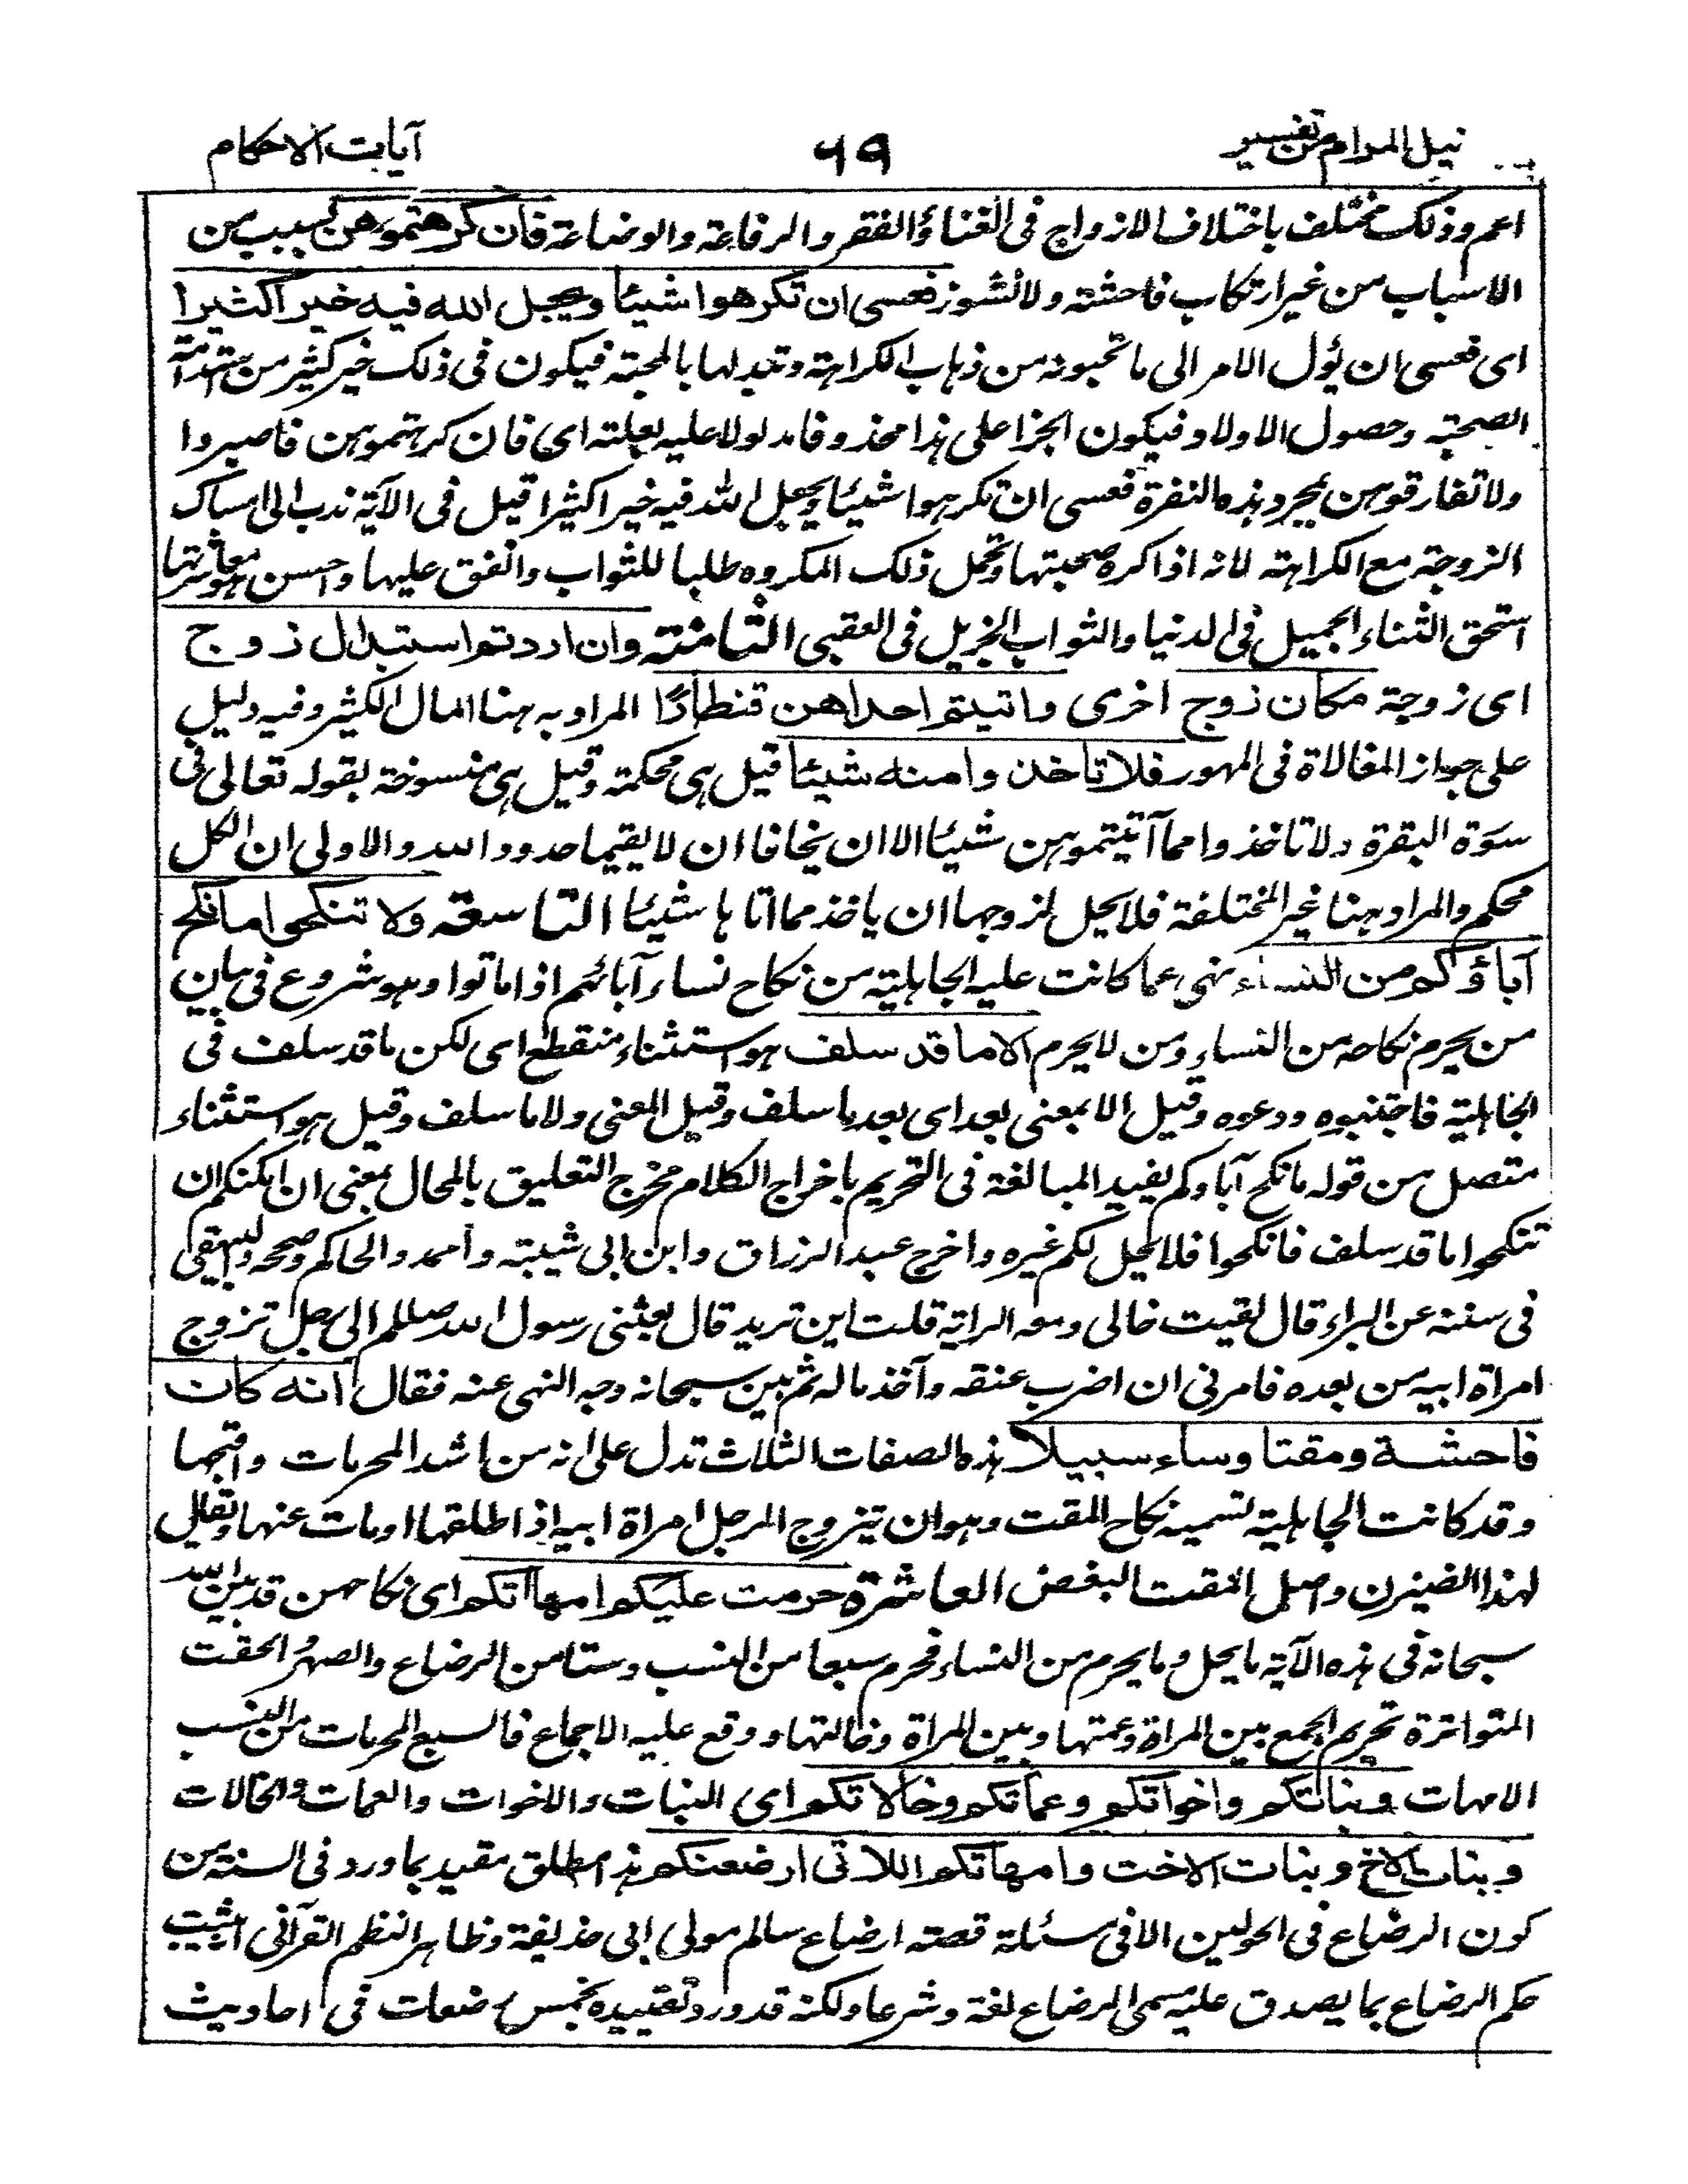 نيل المرام من تفسير
٦٩
آيات الاحكام
اعم وذلك مختلف باختلاف الازواج فى الغناء والفقر والرفاعة والوضاعة فان كرهتموهن لسبب من
الاسباب من غير ارتكاب فاحشة ولا نشوز فعسى ان تكرهوا شيئا ويجعل الله فيه خيرا كثيرا
اى فعسى ان يؤل الامر الى ما تحبونه من ذهاب الكراهة وتبدلها بالمحبة فيكون فى ذلك خير كثير من استدامة
الصحبة وحصول الاولاد فيكون الجزاء على هذا محذوفا مدلولا عليه بعلته اى فان كرهتموهن فاصبروا
ولا تفارقوهن بمجرد هذه النفرة فعسى ان تكرهوا شيئا ويجعل الله فيه خيرا كثيرا قيل فى الآية ندب الى امساك
الزوجة مع الكراهة لانه اذا كره صحبتها وتحمل ذلك المكروه طلبا للثواب وانفق عليها واحسن هو معاشرتها
استحق الثناء الجميل فى الدنيا والثواب الجزيل فى العقبى الثامنة وان اردتم استبدال زوج
اى زوجة مكان زوج اخرى واتيتم احداهن قنطارا المراد به هنا المال الكثير وفيه دليل
على جواز المغالاة فى المهور فلا تاخذوا منه شيئا قيل هى محكمة وقيل هى منسوخة بقوله تعالى فى
سورة البقرة ولا تاخذوا مما آتيتموهن شيئا الا ان يخافا ان لا يقيما حدود الله والاولى ان الكل
محكم والمراد هنا غير المختلفة فلا يحل لزوجها ان ياخذ مما اتاها شيئا التاسعة ولا تنكحوا ما نكح
آباؤكم من النساء نهى عما كانت عليه الجاهلية من نكاح نساء آبائهم اذا ماتوا وهو شروع فى بيان
من يحرم نكاحه من النساء ومن لا يحرم الا ما قد سلف هو استثناء منقطع اى لكن ما قد سلف فى
الجاهلية فاجتنبوه ودعوه وقيل الا بمعنى بعد اى بعد ما سلف وقيل المعنى ولا ما سلف وقيل هو استثناء
متصل من قوله ما نكح آباؤكم يفيد المبالغة فى التحريم باخراج الكلام مخرج التعليق بالمحال يعنى ان امكنكم ان
تنكحوا ما قد سلف فانكحوا فلا يحل لكم غيره واخرج عبد الرزاق وابن ابى شيبة واحمد والحاكم وصححه والبيهقى
فى سننه عن البراء قال لقيت خالى ومعه الراية قلت اين تريد قال بعثنى رسول الله صللم الى رجل تزوج
امراة ابيه من بعده فامرنى ان اضرب عنقه وآخذ ماله ثم بين سبحانه وجه النهى عنه فقال انه كان
فاحشة ومقتا وساء سبيلا هذه الصفات الثلاث تدل على انه من اشد المحرمات واقبحها
وقد كانت الجاهلية تسميه نكاح المقت وهو ان يتزوج الرجل امراة ابيه اذا طلقها او مات عنها ويقال
لهذا الضيزن واصل المقت البغض العاشرة حرمت عليكم امهاتكم اى نكاحهن قد بين الله
سبحانه فى هذه الآية ما يحل وما يحرم من النساء فحرم سبعا من النسب وستا من الرضاع والصهر والحقت
المتواترة تحريم الجمع بين المراة وعمتها وبين المراة وخالتها ووقع عليه الاجماع فالسبع المحرمات من النسب
الامهات وبناتكم واخواتكم وعماتكم وخالاتكم اى البنات والاخوات والعمات والخالات
وبنات الاخ وبنات الاخت وامهاتكم اللاتى ارضعنكم هذا مطلق مقيد بما ورد فى السنة من
كون الرضاع فى الحولين الا فى مسئلة قصة ارضاع سالم مولى ابى حذيفة وظاهر النظم القرآنى اثبت
حكم الرضاع بما يصدق عليه مسمى الرضاع لغة وشرعا ولكنه قد ورد تقييده بخمس رضعات فى احاديث